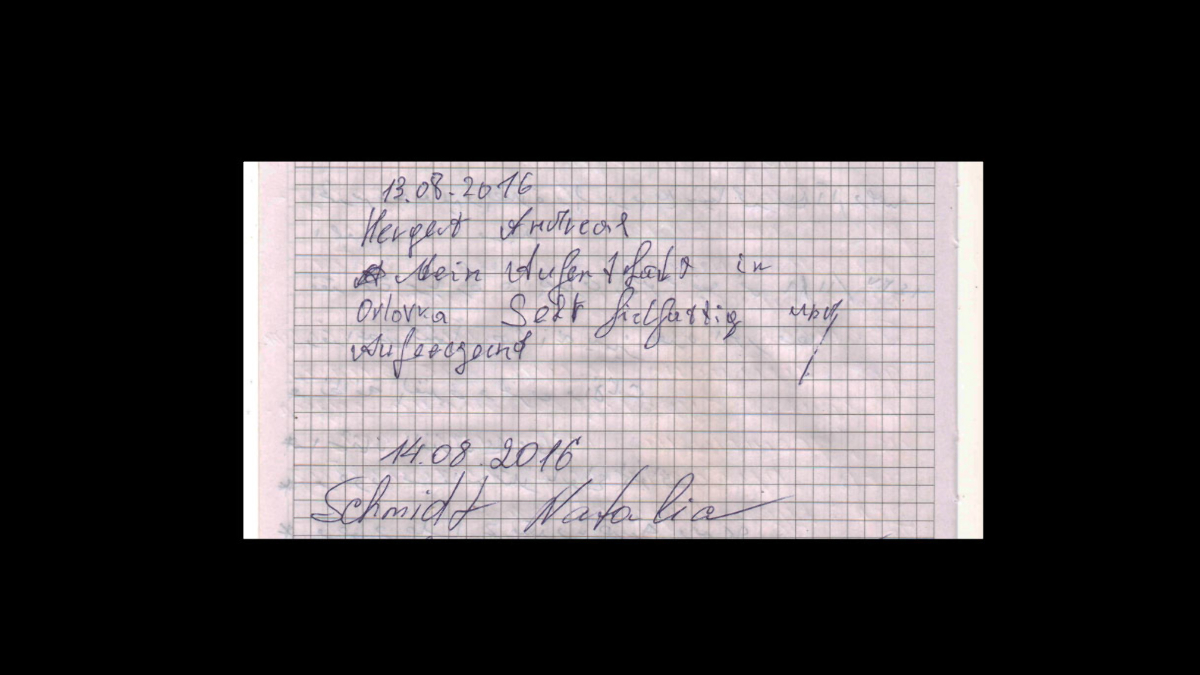 13.08.2016
Hergert Andreas
Mein Aufenthalt in
Orlovka Sehr und
14.08.2016
Schmidt Natalia